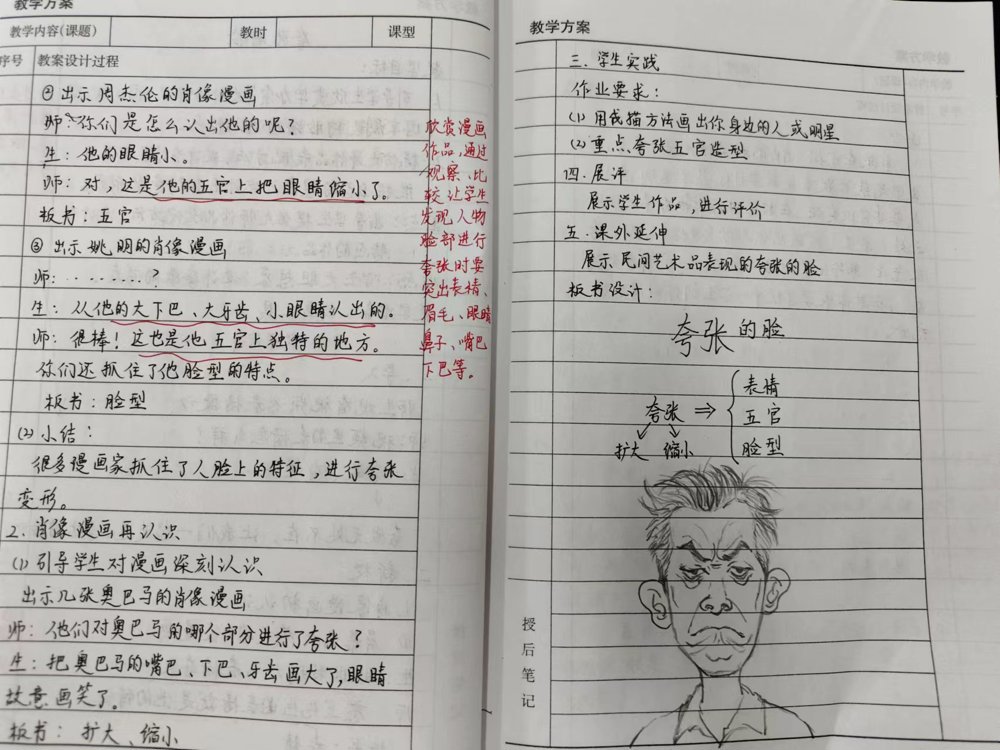 教学方案
教学内容(课题)
教时
课型
序号
教案设计过程
④出示周杰伦的肖像漫画
师:你们是怎么认出他的呢?
生:他的眼睛小。
师:对,这是他的五官上把眼睛缩小了。
板书:五官
⑤出示姚明的肖像漫画
师:………?
生:从他的大下巴、大牙齿、小眼睛认出的。
师:很棒!这也是他五官上独特的地方。
你们还抓住了他脸型的特点。
板书:脸型
(2)小结:
很多漫画家抓住了人脸上的特征,进行夸张
变形。
2.肖像漫画再认识
(1)引导学生对漫画深刻认识
出示几张奥巴马的肖像漫画
师:他们对奥巴马的哪个部分进行了夸张?
生:把奥巴马的嘴巴、下巴、牙齿画大了,眼睛
故意画笑了。
板书:扩大、缩小
欣赏漫画
作品,通过
观察、比
较让学生
发现人物
脸部进行
夸张时要
突出表情、
眉毛、眼睛
鼻子、嘴巴
下巴等。
教学方案
三.学生实践
作业要求:
(1)用线描方法画出你身边的人或明星
(2)重点夸张五官造型
四.展评
展示学生作品,进行评价
五.课外延伸
展示民间艺术品表现的夸张的脸
板书设计:
夸张的脸
夸张⇒{表情
五官
脸型
扩大 缩小
授后笔记